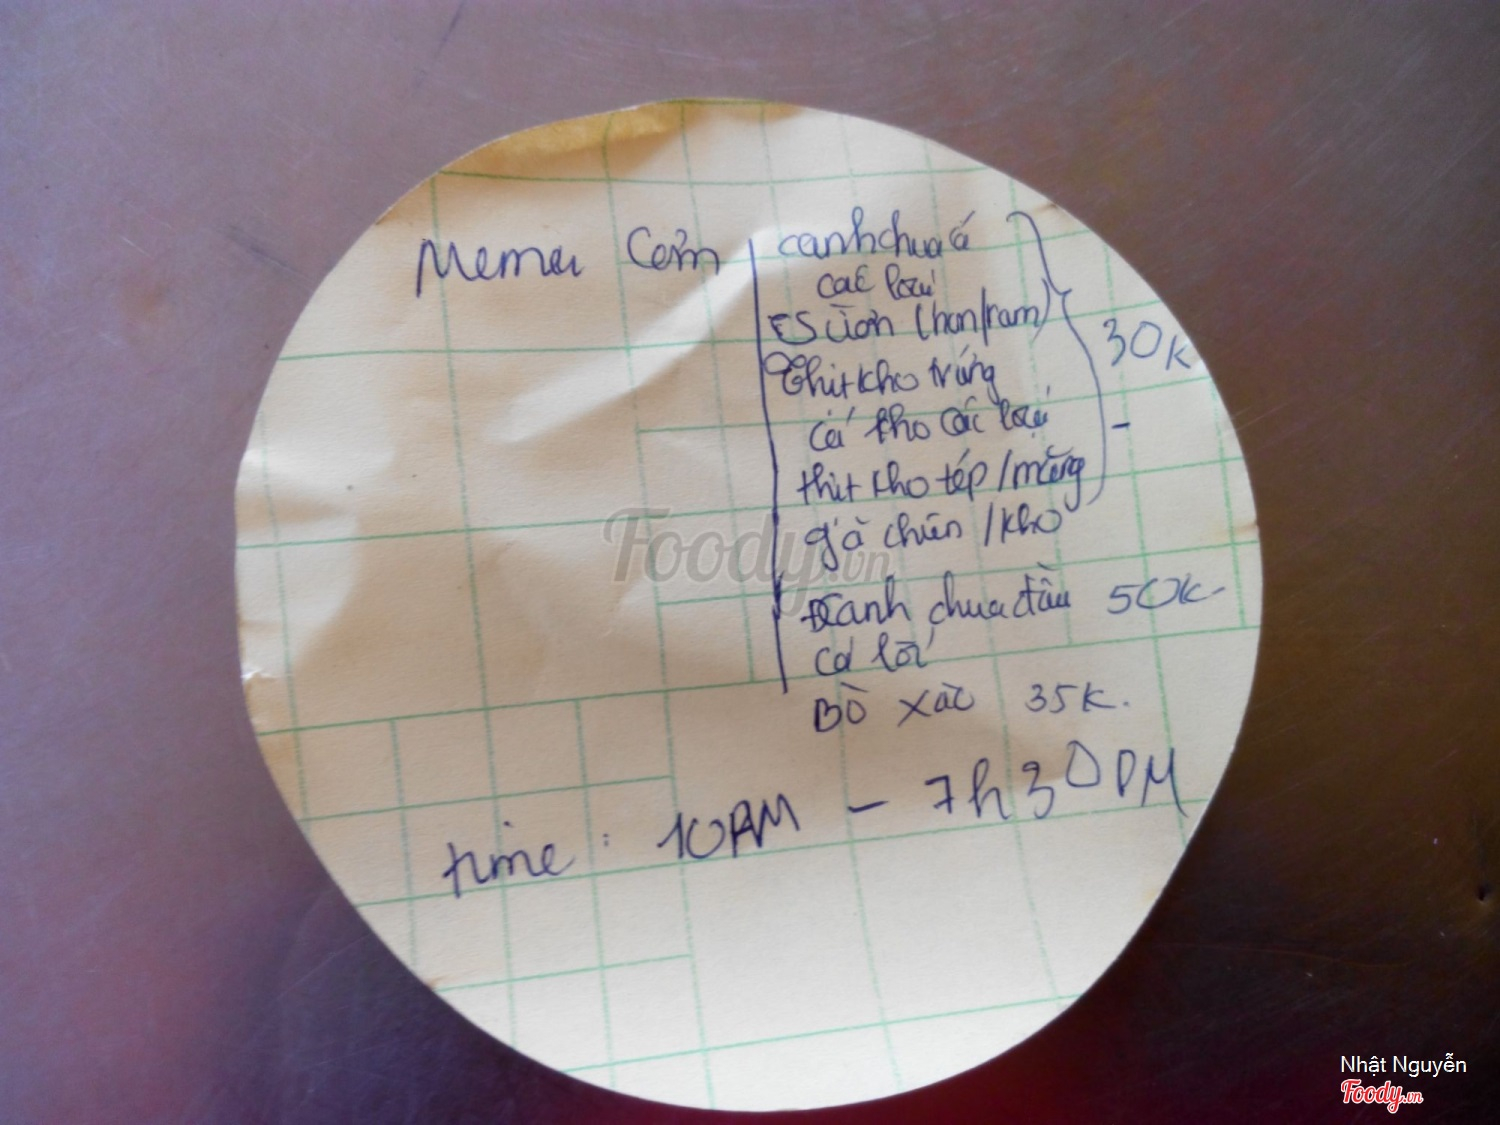 Menu Cơm
canh chua cá
các loại
Sườn (non/ram)
Thịt kho trứng
30K
cá kho các loại
thịt kho tép/măng
gà chiên/kho
Canh chua đầu 50K
cá lóc
Bò xào 35K.
time: 10AM - 7h30PM
Foody.vn
Nhật Nguyễn
Foody.vn